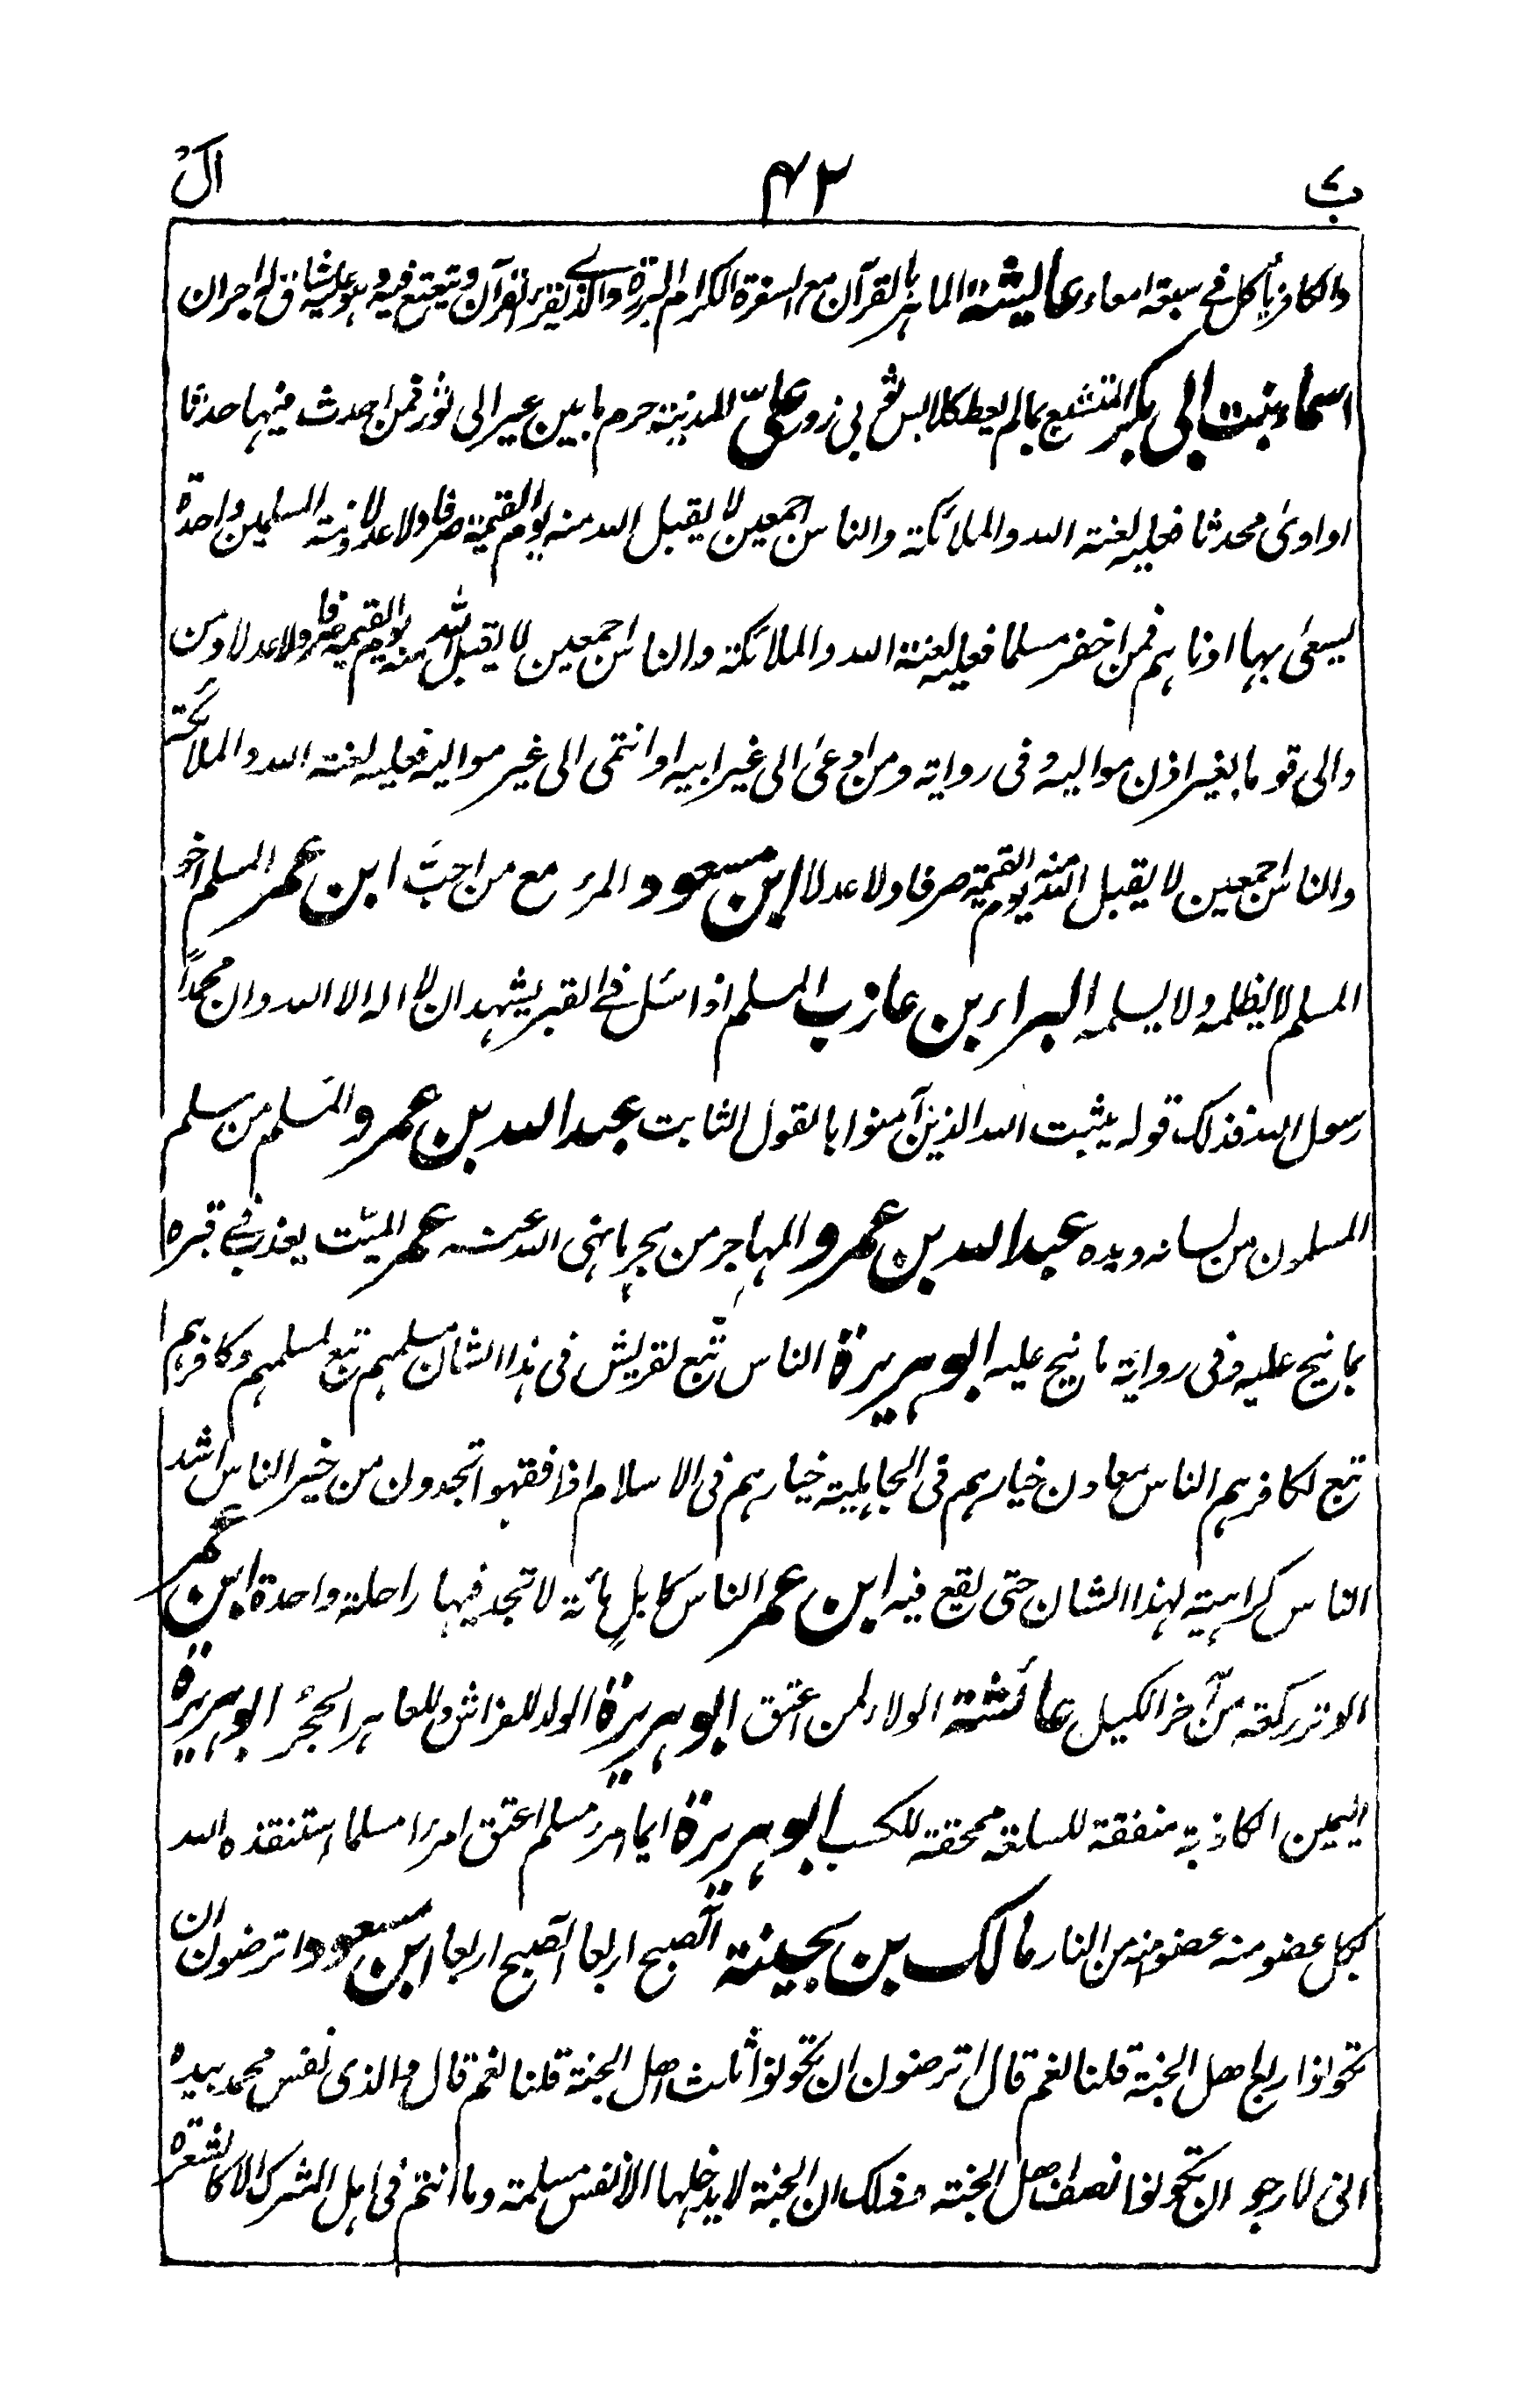 ب ٤٢ ال
والكافر يأكل في سبعة امعاء عائشة الماهر بالقرآن مع السفرة الكرام البررة والذي يقرء القرآن ويتعتع فيه وهو عليه شاق له اجران
اسماء بنت ابي بكر المتشبع بما لم يعط كلابس ثوبي زور علىّ المدينة حرم ما بين عير الى ثور فمن احدث فيها حدثا
او اوىٰ محدثا فعليه لعنة الله والملائكة والناس اجمعين لا يقبل الله منه يوم القيمة صرفا ولا عدلا ذمة المسلمين واحدة
يسعىٰ بها ادناهم فمن اخفر مسلما فعليه لعنة الله والملائكة والناس اجمعين لا يقبل الله منه يوم القيمة صرفا ولا عدلا ومن
والى قوما بغير اذن مواليه وفى رواية ومن ادعىٰ الى غير ابيه او انتمى الى غير مواليه فعليه لعنة الله والملائكة
والناس اجمعين لا يقبل الله منه يوم القيمة صرفا ولا عدلا ابن مسعود المرء مع من احبّ ابن عمر المسلم اخو
المسلم لا يظلمه ولا يسلمه البراء بن عازب المسلم اذا سئل في القبر يشهد ان لا اله الا الله وان محمداً
رسول الله فذلك قوله يثبت الله الذين آمنوا بالقول الثابت عبد الله بن عمرو المسلم من سلم
المسلمون من لسانه ويده عبد الله بن عمرو المهاجر من هجر ما نهى الله عنه عمر الميّت يعذب في قبره
بما نيح عليه وفى رواية ما نيح عليه ابو هريرة الناس تبع لقريش فى هذا الشان مسلمهم تبع لمسلمهم وكافرهم
تبع لكافرهم الناس معادن خيارهم فى الجاهلية خيارهم فى الاسلام اذا فقهوا تجدون من خير الناس اشد
الناس كراهية لهذا الشان حتى يقع فيه ابن عمر الناس كابلٍ مائة لا تجد فيها راحلة واحدة ابن عمر
الوتر ركعة من آخر الليل عائشة الولاء لمن اعتق ابو هريرة الولد للفراش وللعاهر الحجرُ ابو هريرة
اليمين الكاذبة منفقة للسلعة ممحقة للكسب ابو هريرة ايما امرء مسلم اعتق امرءا مسلما استنقذه الله
بكل عضو منه عضوا منه من النار مالك بن بحينة آلصبح اربعا آلصبح اربعا ابن مسعود اترضون ان
تكونوا ربع اهل الجنة قلنا نعم قال اترضون ان تكونوا ثلث اهل الجنة قلنا نعم قال والذى نفس محمد بيده
انى لارجو ان تكونوا نصف اهل الجنة وذلك ان الجنة لا يدخلها الا نفس مسلمة وما انتم فى اهل الشرك الا كالشعرة